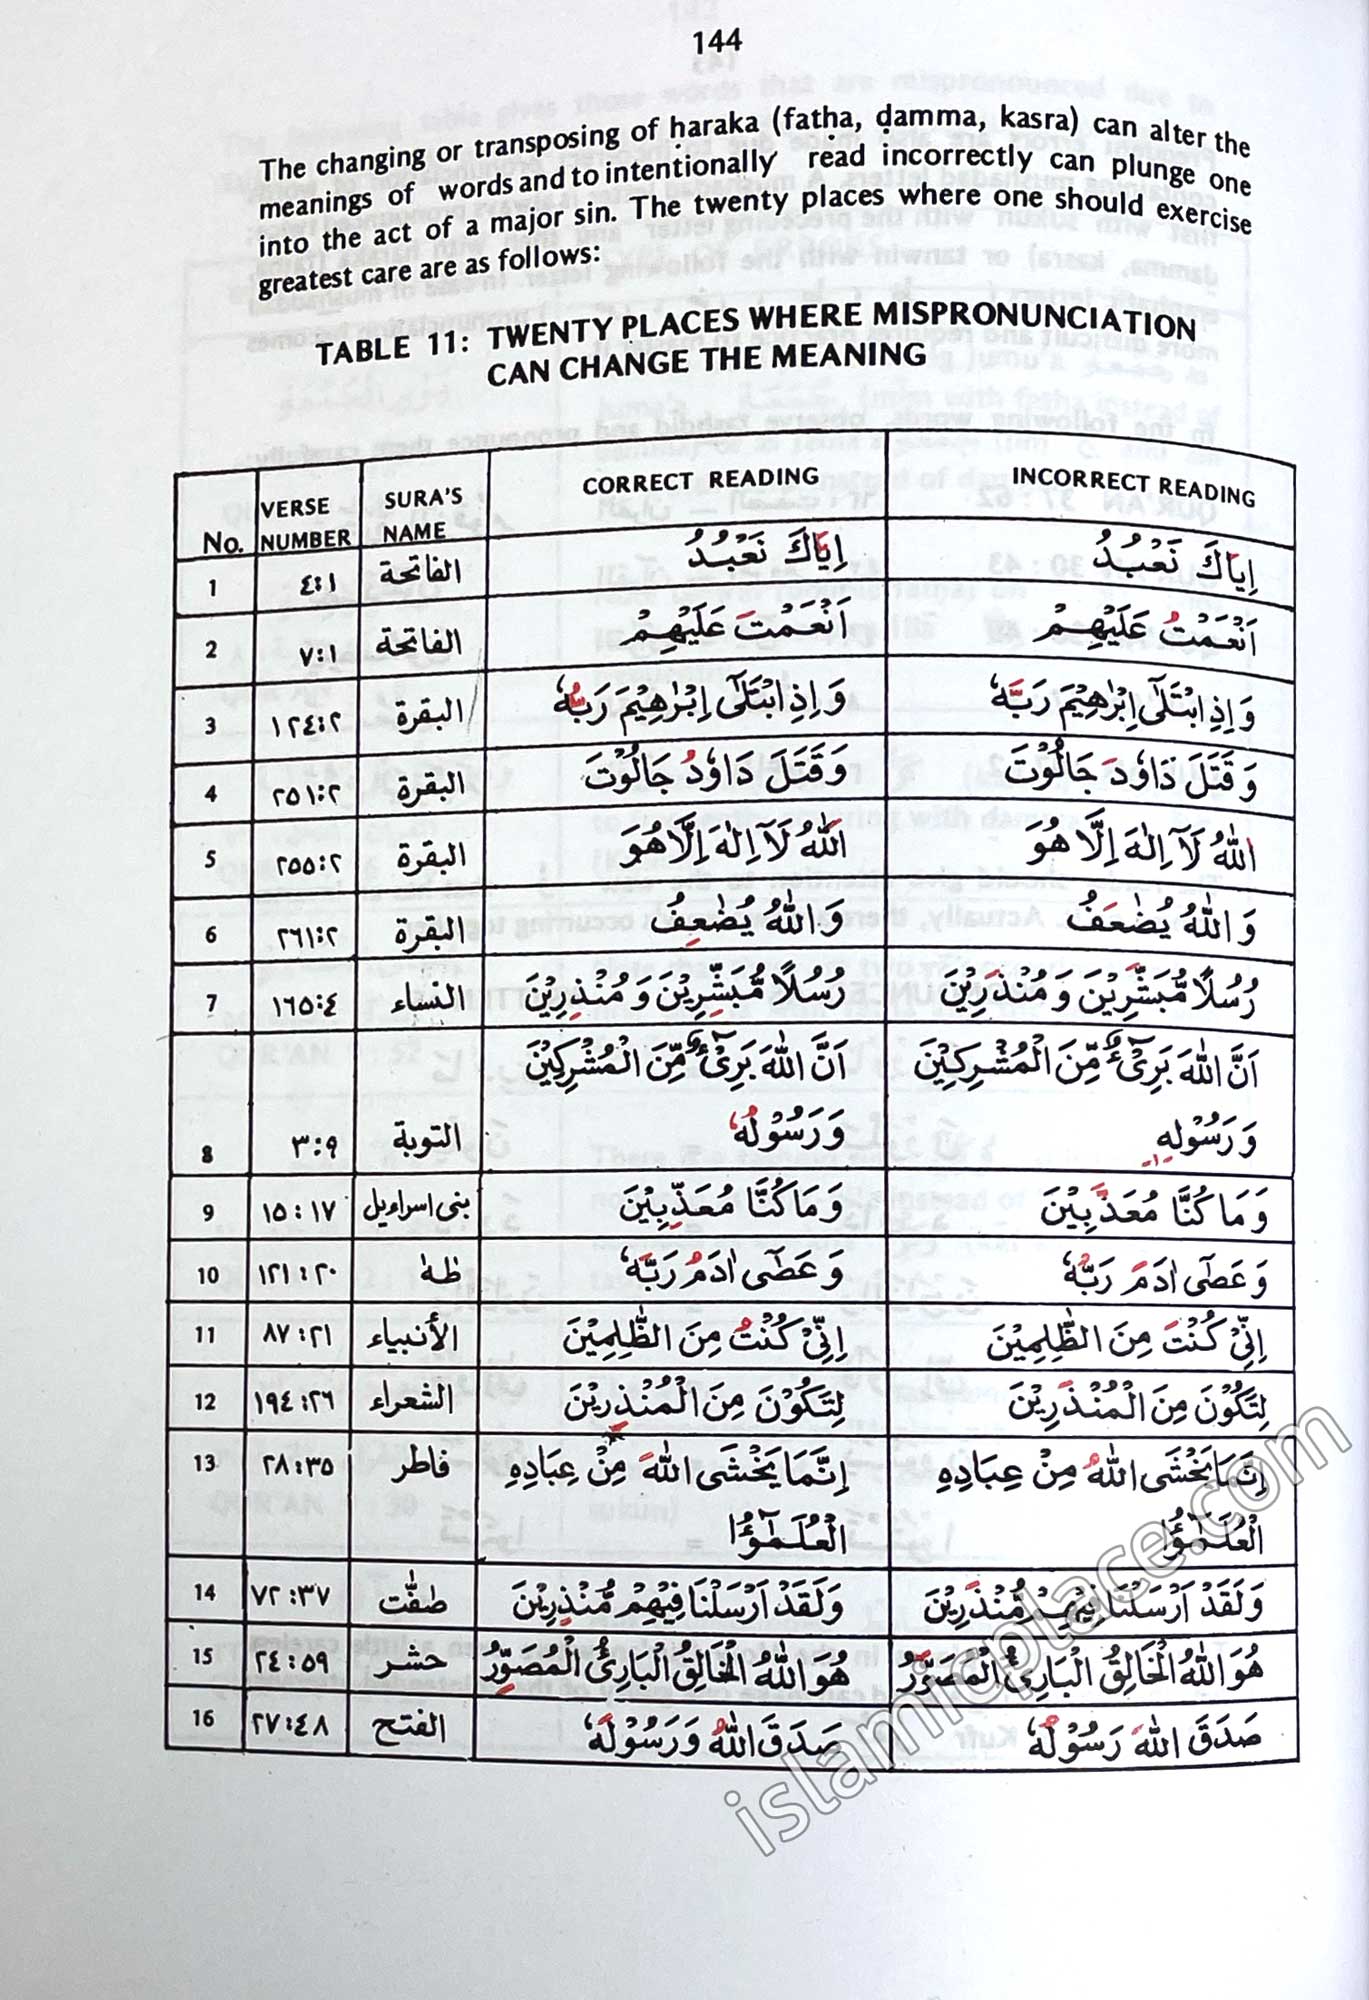 144
The changing or transposing of ḥaraka (fatḥa, ḍamma, kasra) can alter the
meanings of words and to intentionally read incorrectly can plunge one
into the act of a major sin. The twenty places where one should exercise
greatest care are as follows:
TABLE 11: TWENTY PLACES WHERE MISPRONUNCIATION
CAN CHANGE THE MEANING
No. VERSE NUMBER SURA'S NAME CORRECT READING INCORRECT READING
1 ٤:١ الفاتحة اِيَّاكَ نَعْبُدُ اِيَاكَ نَعْبُدُ
2 ٧:١ الفاتحة اَنْعَمْتَ عَلَيْهِمْ اَنْعَمْتُ عَلَيْهِمْ
3 ١٢٤:٢ البقرة وَاِذِ ابْتَلٰٓى اِبْرٰهِيْمَ رَبُّهٗ وَاِذِ ابْتَلٰٓى اِبْرٰهِيْمَ رَبَّهٗ
4 ٢٥١:٢ البقرة وَقَتَلَ دَاوٗدُ جَالُوْتَ وَقَتَلَ دَاوٗدَ جَالُوْتَ
5 ٢٥٥:٢ البقرة اَللّٰهُ لَآ اِلٰهَ اِلَّا هُوَ اَللّٰهُ لَآ اِلٰهَ اِلَّا هُوَ
6 ٢٦١:٢ البقرة وَاللّٰهُ يُضٰعِفُ وَاللّٰهُ يُضٰعَفُ
7 ١٦٥:٤ النساء رُسُلًا مُّبَشِّرِيْنَ وَمُنْذِرِيْنَ رُسُلًا مُّبَشَّرِيْنَ وَمُنْذَرِيْنَ
8 ٣:٩ التوبة اَنَّ اللّٰهَ بَرِىْٓءٌ مِّنَ الْمُشْرِكِيْنَ وَرَسُوْلُهٗ اَنَّ اللّٰهَ بَرِىْٓءٌ مِّنَ الْمُشْرِكِيْنَ وَرَسُوْلِهٖ
9 ١٥:١٧ بنى اسراءيل وَمَا كُنَّا مُعَذِّبِيْنَ وَمَا كُنَّا مُعَذَّبِيْنَ
10 ١٢١:٢٠ طٰهٰ وَعَصٰٓى اٰدَمُ رَبَّهٗ وَعَصٰٓى اٰدَمَ رَبُّهٗ
11 ٨٧:٢١ الأنبياء اِنِّىْ كُنْتُ مِنَ الظّٰلِمِيْنَ اِنِّىْ كُنْتَ مِنَ الظّٰلِمِيْنَ
12 ١٩٤:٢٦ الشعراء لِتَكُوْنَ مِنَ الْمُنْذِرِيْنَ لِتَكُوْنَ مِنَ الْمُنْذَرِيْنَ
13 ٢٨:٣٥ فاطر اِنَّمَا يَخْشَى اللّٰهَ مِنْ عِبَادِهِ الْعُلَمٰٓؤُا اِنَّمَا يَخْشَى اللّٰهُ مِنْ عِبَادِهِ الْعُلَمٰٓؤُا
14 ٧٢:٣٧ صٰفّٰت وَلَقَدْ اَرْسَلْنَا فِيْهِمْ مُّنْذِرِيْنَ وَلَقَدْ اَرْسَلْنَا فِيْهِمْ مُّنْذَرِيْنَ
15 ٢٤:٥٩ حشر هُوَ اللّٰهُ الْخَالِقُ الْبَارِئُ الْمُصَوِّرُ هُوَ اللّٰهُ الْخَالِقُ الْبَارِئُ الْمُصَوَّرُ
16 ٢٧:٤٨ الفتح صَدَقَ اللّٰهُ وَرَسُوْلُهٗ صَدَقَ اللّٰهَ رَسُوْلُهٗ
islamicplace.com